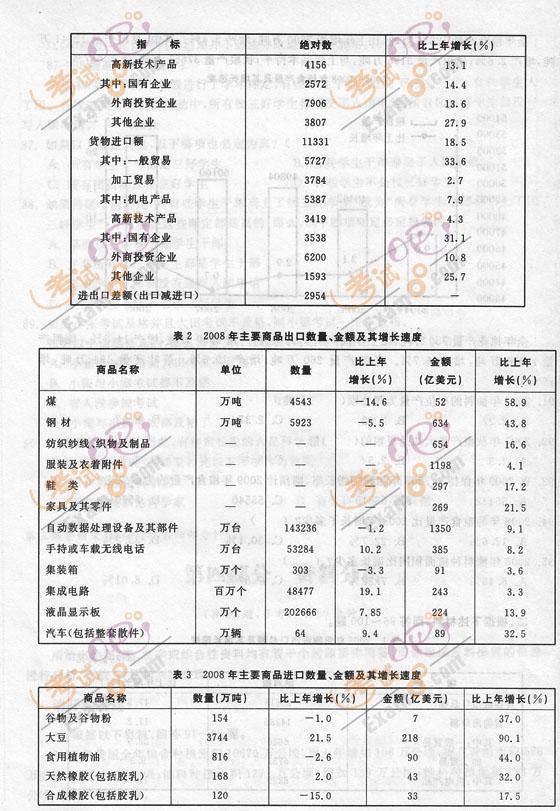 指 标 绝对数 比上年增长(%)
高新技术产品 4156 13.1
其中:国有企业 2572 14.4
外商投资企业 7906 13.6
其他企业 3807 27.9
货物进口额 11331 18.5
其中:一般贸易 5727 33.6
加工贸易 3784 2.7
其中:机电产品 5387 7.9
高新技术产品 3419 4.3
其中:国有企业 3538 31.1
外商投资企业 6200 10.8
其他企业 1593 25.7
进出口差额(出口减进口) 2954 —
表 2 2008 年主要商品出口数量、金额及其增长速度
商品名称 单位 数量 比上年增长(%) 金额(亿美元) 比上年增长(%)
煤 万吨 4543 -14.6 52 58.9
钢 材 万吨 5923 -5.5 634 43.8
纺织纱线、织物及制品 — — — 654 16.6
服装及衣着附件 — — — 1198 4.1
鞋 类 — — — 297 17.2
家具及其零件 — — — 269 21.5
自动数据处理设备及其部件 万台 143236 -1.2 1350 9.1
手持或车载无线电话 万台 53284 10.2 385 8.2
集装箱 万个 303 -3.3 91 3.6
集成电路 百万个 48477 19.1 243 3.3
液晶显示板 万个 202666 7.85 224 13.9
汽车(包括整套散件) 万辆 64 9.4 89 32.5
表 3 2008 年主要商品进口数量、金额及其增长速度
商品名称 数量(万吨) 比上年增长(%) 金额(亿美元) 比上年增长(%)
谷物及谷物粉 154 -1.0 7 37.0
大豆 3744 21.5 218 90.1
食用植物油 816 -2.6 90 44.0
天然橡胶(包括胶乳) 168 2.0 43 32.0
合成橡胶(包括胶乳) 120 -15.0 33 17.5